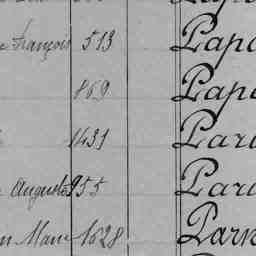 François 513 Papo
869 Pape
1431 Pari
Auguste 955 Pari
Marie 1628 Parn